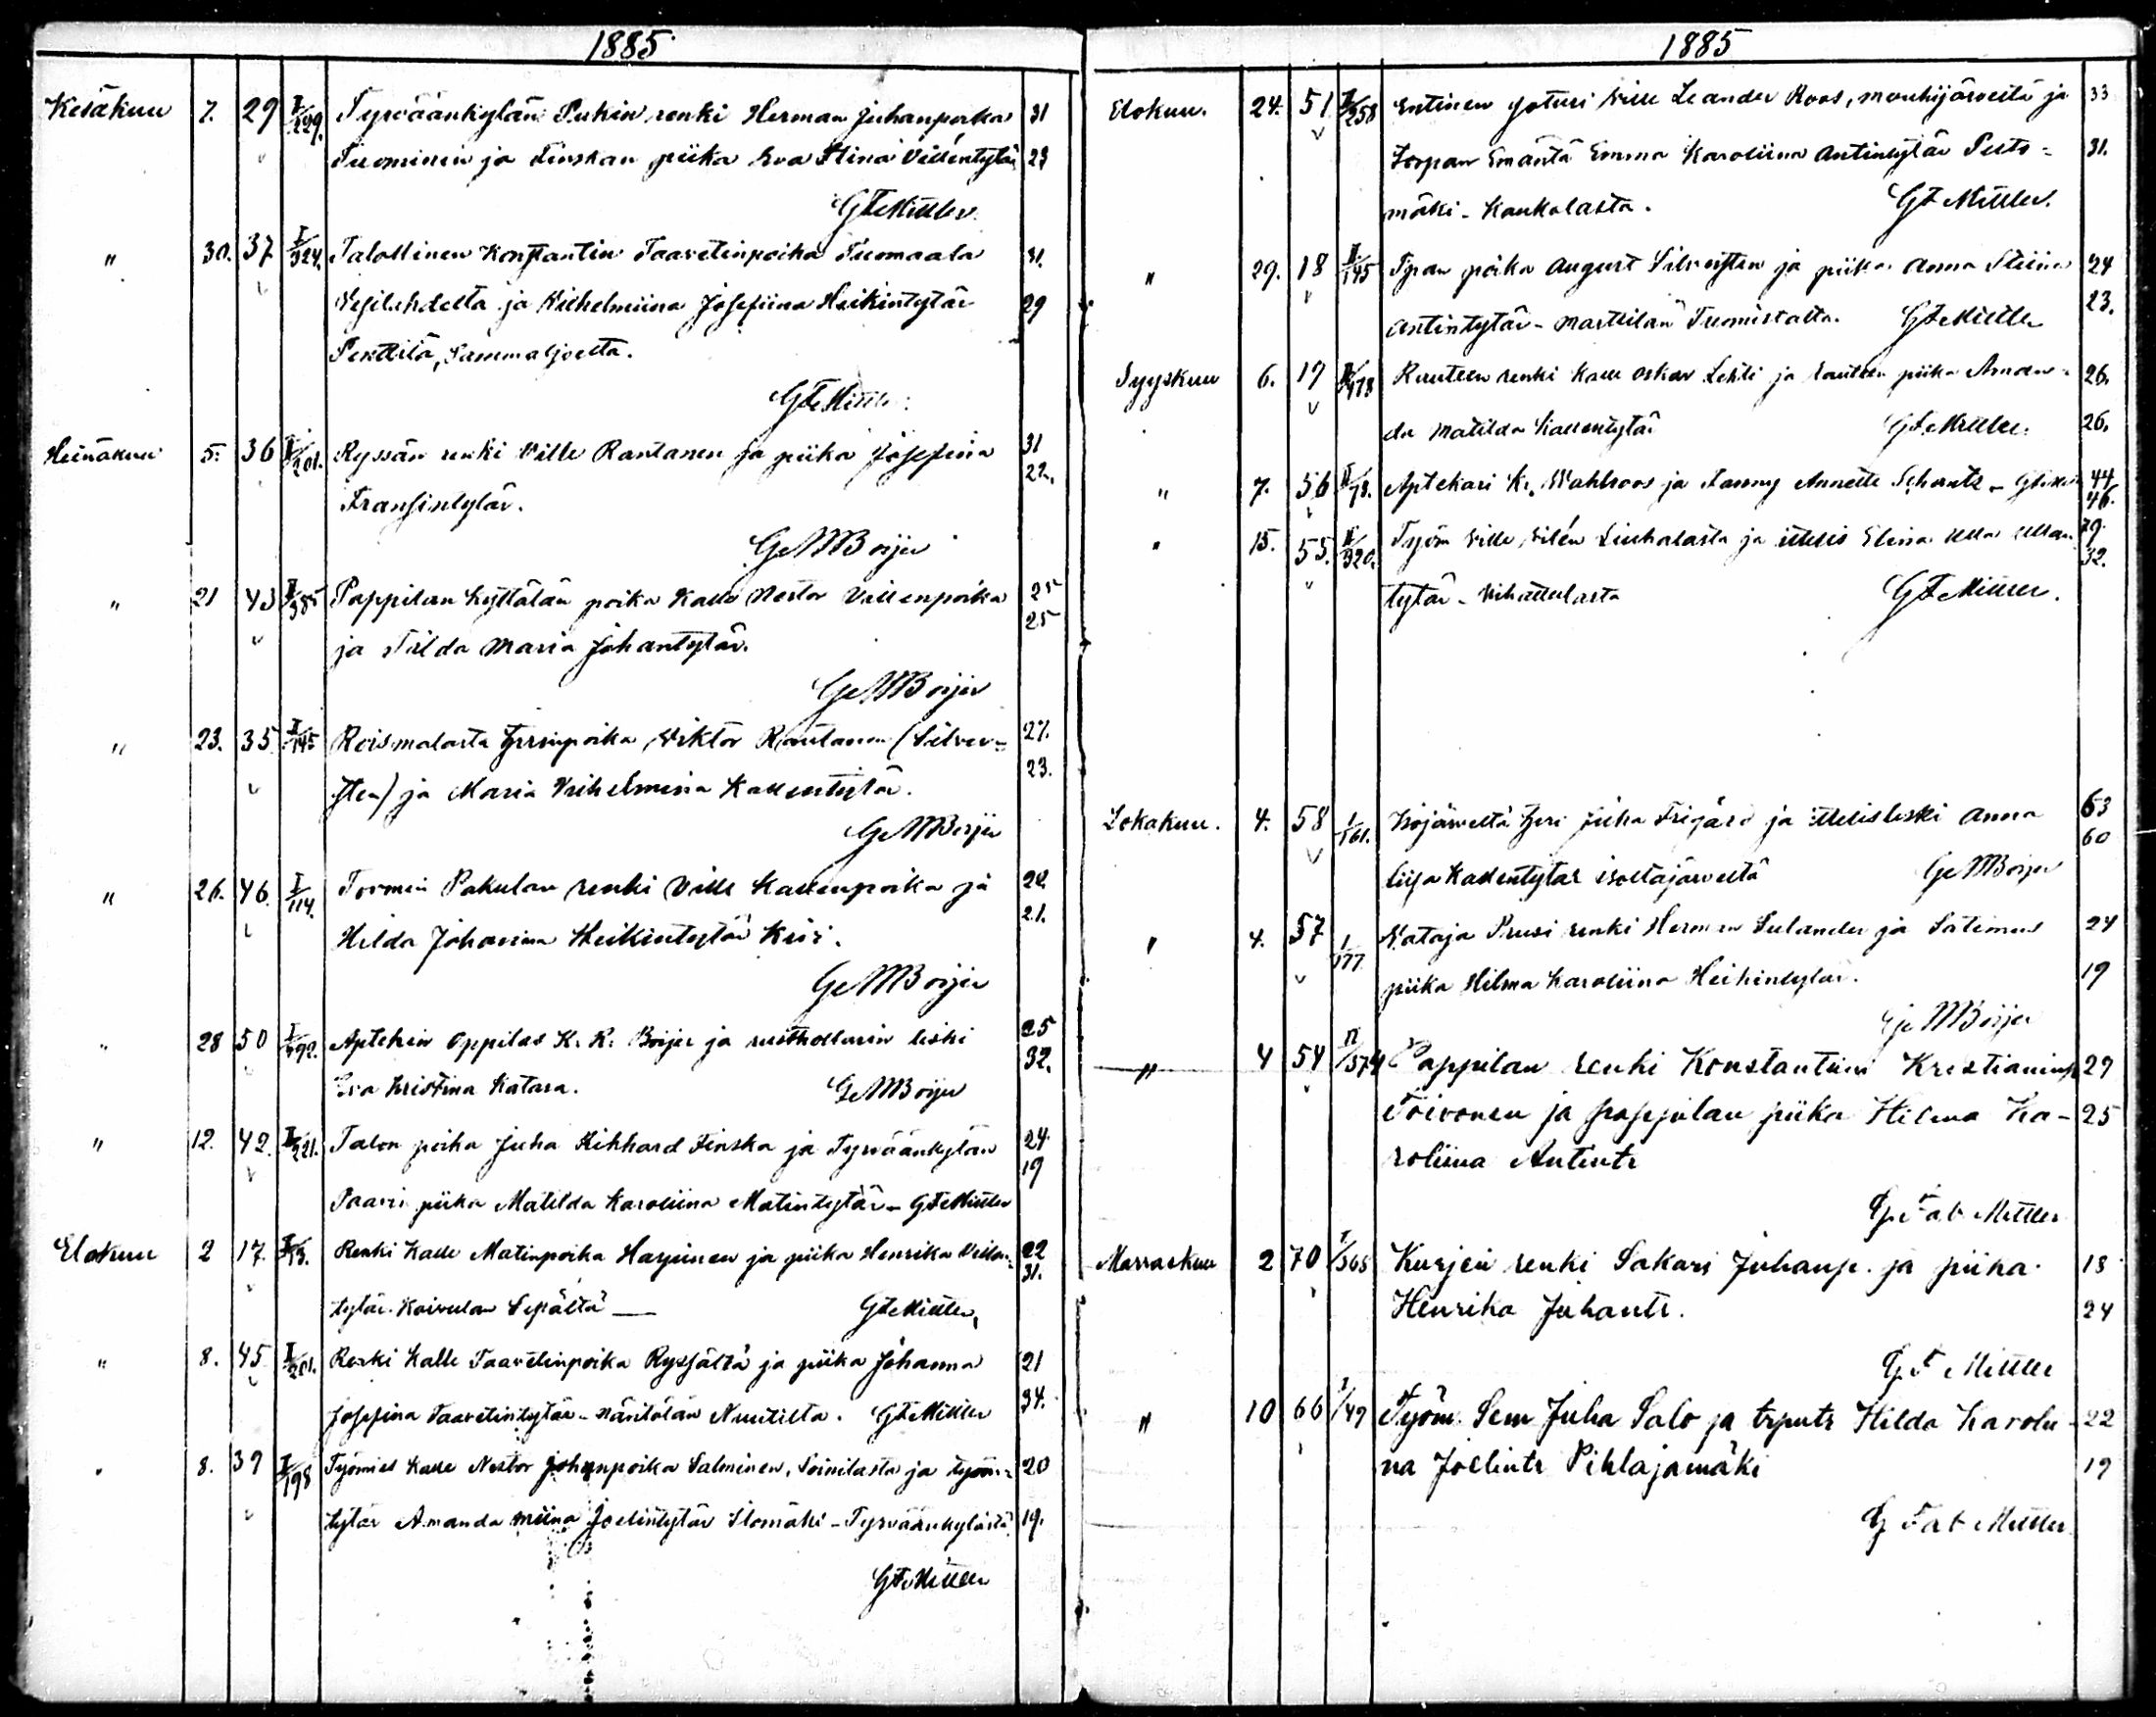 1885
Kesäkuu 7. 29 I/229. Tyrväänkylän Puhin renki Herman Juhanpoika 31
Tuominen ja Finskan piika Eva Stina Villentytär 23
G F Mittler
" 30. 37 I/324. Talollinen Konstantin Taavetinpoika Tuomaala 31.
Vesilahdelta ja Wilhelmiina Josefiina Heikintytär 29
Penttilä, Sammaljoelta.
G F Mittler
Heinäkuu 5. 36 I/201. Ryssän renki Ville Rantanen ja piika Josefina 31
Fransintytär. 22.
G M Boijer
" 21 43 II/385 Pappilan Kyttälän poika Kalle Nestor Villenpoika 25
ja Tilda Maria Johantytär. 25
G M Boijer
" 23. 35 I/145 Roismalasta poika Viktor Rantanen (Silver- 27.
sten) ja Maria Vilhelmina Kallentytär. 23.
G M Boijer
" 26. 46. I/114. Tormin Pakulan renki Ville Kallenpoika ja 22
Hilda Johanna Heikintytär Krii. 21.
G M Boijer
" 28 50 Aptekin oppilas K. R. Boijer ja rusthollarin leski 25
Eva Kristina Katara. G M Boijer 32.
" 12. 42. I/221. Talon poika Juha Rikhard Finska ja Tyrväänkylän 24
Paavin piika Matilda Karoliina Matintytär - G F Mittler 19
Elokuu 2 17. Renki Kalle Matinpoika Harjunen ja piika Henrika Villen- 22
tytär Koivulan Sepältä — G F Mittler 31.
" 8. 45 I/201. Renki Kalle Taavetinpoika Ryssältä ja piika Johanna 21
Josefina Taavetintytär - Näntölän Nuutilta. G F Mittler 34.
" 8. 39 I/198 Työmies Kalle Nestor Johanpoika Salminen, Soinilasta ja työm- 20
tytär Amanda Miina Joelintytär Ilomäki - Tyrväänkylästä 19.
G F Mittler
1885
Elokuu. 24. 51 I/258 Entinen Ville Leander Roos, Mouhijärveltä ja 33
Jospan Emäntä Emma Karoliina Antintytär Pesto- 31.
mäki - Kaukolasta. G F Mittler.
" 29. 18 I/145 poika August Silversten ja piika Anna Stiina 24
Antintytär - Marttilän Tuomistalta. G F Mittler 23.
Syyskuu 6. 19 Ruuteen renki Kalle Oskar Lehti ja Rauteen piika Aman- 26.
da Matilda Kallentytär G F Mittler. 26.
" 7. 56 Aptekari K. Wahlroos ja Fanny Annette Schantz - 44
46.
" 15. 55. II/320. Työm Ville Vilén Liuhalasta ja itsellis Elina Ulla Ullan 29
tytär - Vihattulasta G F Mittler. 32.
Lokakuu. 4. 58 I/161. Isojärveltä Juha Frigård ja itsellisleski Anna 63
Liisa Kallentytär Isoltajärveltä G M Boijer 60
" 4. 57 I/177 Nataja Prusi renki Herman Sulander ja Satimus 24
piika Hilma Karoliina Heikintytär. 19
G M Boijer
" 4 54 II/374 Pappilan renki Konstantiini Kristianinp 29
Toivonen ja pappilan piika Hilma Ka- 25
roliina Antintr
G Fab Mittler
Marraskuu 2 70 I/365 Kurjen renki Sakari Juhanp. ja piika 18
Henrika Juhantr. 24
G F Mittler
" 10 66 I/49 Työm. Sem Juha Salo ja torpantr Hilda Karolii- 22
na Joelintr Pihlajamäki 19
G Fab Mittler